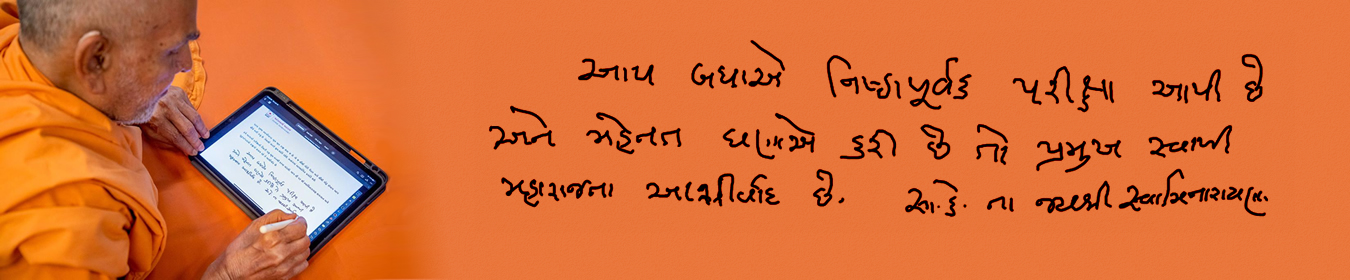 આપ બધાએ નિષ્ઠાપૂર્વક પરીક્ષા આપી છે
અને મહેનત ઘણાએ કરી છે તો પ્રમુખ સ્વામી
મહારાજના આશીર્વાદ છે. સા.કે. ના જયશ્રી સ્વામિનારાયણ.